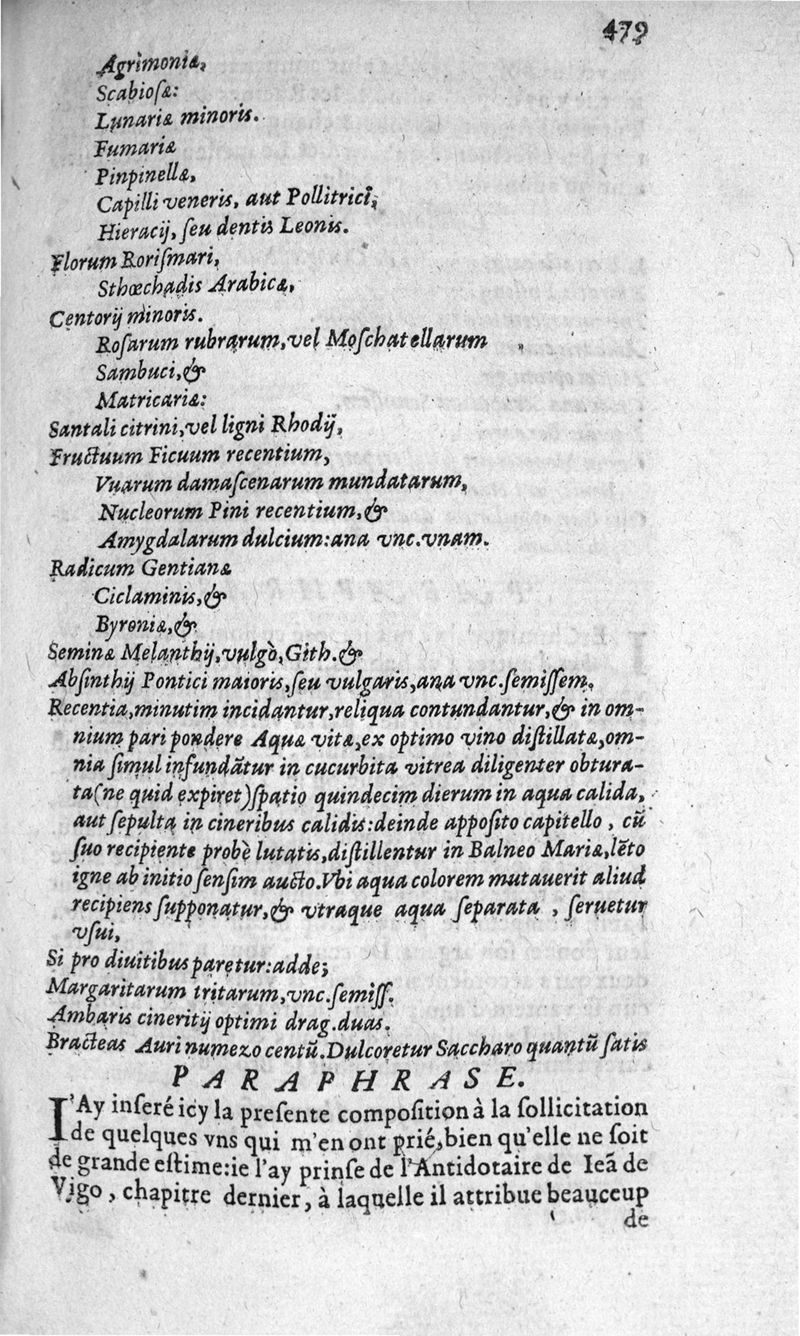 479
Agrimoniæ,
Scabioſæ:
Lunariæ minoris.
Fumariæ
Pinpinellæ,
Capilli veneris, aut Pollitrici,
Hieracij, ſeu dentis Leonis.
Florum Roriſmari,
Sthœchadis Arabicæ,
Centorij minoris.
Roſarum rubrarum,vel Moſchatellarum
Sambuci,&
Matricariæ:
Santali citrini,vel ligni Rhodij,
Fructuum Ficuum recentium,
Vuarum damaſcenarum mundatarum,
Nucleorum Pini recentium,&
Amygdalarum dulcium:ana vnc.vnam.
Radicum Gentianæ
Ciclaminis,&
Byroniæ,&
Seminæ Melanthij,vulgò,Gith.&
Abſinthij Pontici maioris,ſeu vulgaris,ana vnc.ſemiſſem.
Recentia,minutim incidantur,reliqua contundantur,& in om-
nium pari pondere Aquæ vitæ,ex optimo vino diſtillatæ,om-
nia ſimul infundãtur in cucurbita vitrea diligenter obtura-
ta(ne quid expiret)ſpatio quindecim dierum in aqua calida,
aut ſepulta in cineribus calidis:deinde appoſito capitello , cũ
ſuo recipiente probè lutatis,diſtillentur in Balneo Mariæ,lẽto
igne ab initio ſenſim aucto.Vbi aqua colorem mutauerit aliud
recipiens ſupponatur,& vtraque aqua ſeparata , ſeruetur
vſui,
Si pro diuitibus paretur:adde;
Margaritarum tritarum,vnc.ſemiſſ.
Ambaris cineritij optimi drag.duas.
Bracteas Auri numezo centũ.Dulcoretur Saccharo quantũ ſatis
PARAPHRASE.
I'Ay inſeré icy la preſente compoſition à la ſollicitation
de quelques vns qui m'en ont prié,bien qu'elle ne ſoit
de grande eſtime:ie l'ay prinſe de l'Antidotaire de Ieã de
Vigo , chapitre dernier, à laquelle il attribue beauceup
de